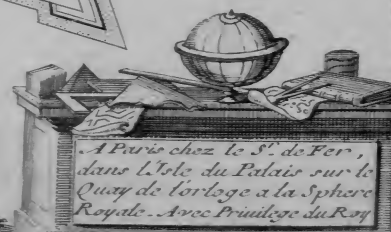 A Paris chez le S.r de Fer,
dans l'Isle du Palais sur le
Quay de l'orloge a la Sphere
Royale. Avec Privilege du Roy